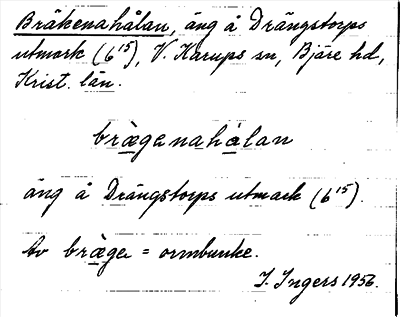 Bräkenahålan, äng å Drängstorps
utmark (6¹⁵), V. Karups sn, Bjäre hd,
Krist. län.
brægenahålan
äng å Drängstorps utmark (6¹⁵).
Av bræge = ormbunke.
I. Ingers 1956.